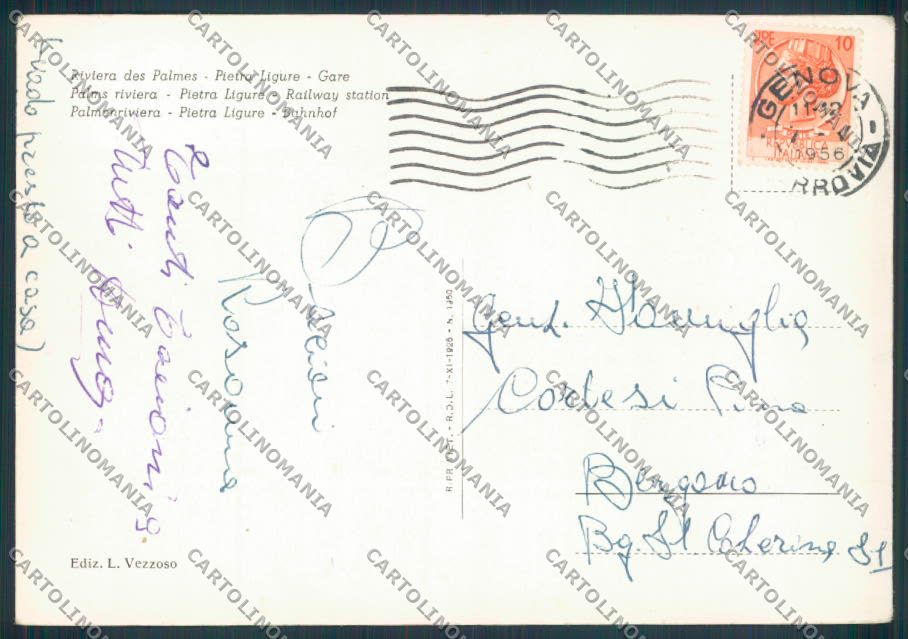 Riviera des Palmes - Pietra Ligure - Gare
Palms riviera - Pietra Ligure - Railway station
Palmenriviera - Pietra Ligure - Bahnhof
LIRE 10
REPVBBLICA
ITALIANA
GENOVA
1956
FERROVIA
(Vado presto a casa)
Tanti
tutti
Bacioni
Rosanna
R. PR. LETT. - R.D.L. 7-XI-1925 - N. 1950
Gent. Famiglia
Cortesi
Bergamo
Bg. St Caterina
Ediz. L. Vezzoso
CARTOLINOMANIA